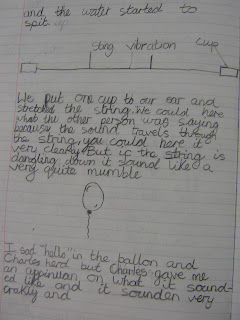 and the water started to
spit up
string vibration cup
We put one cup to our ear and
stretched the string. We could here
what the other person was saying
because the sound travels through
the string, you could here it
very clearly. But if the string is
dangling down it sound like a
very quite mumble
I said "hello" in the ballon and
Charles herd but Charles gave me
an oppinullan on what it sound-
ed like and it sounden very
crakly and